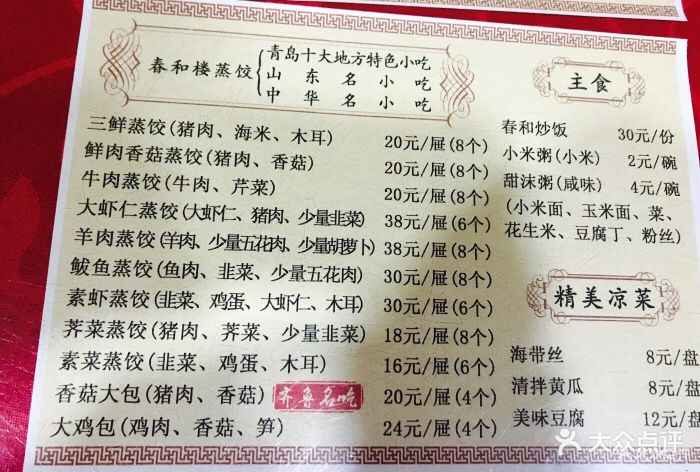 春和楼蒸饺
青岛十大地方特色小吃
山东名小吃
中华名小吃
三鲜蒸饺(猪肉、海米、木耳) 20元/屉(8个)
鲜肉香菇蒸饺(猪肉、香菇) 20元/屉(8个)
牛肉蒸饺(牛肉、芹菜) 20元/屉(8个)
大虾仁蒸饺(大虾仁、猪肉、少量韭菜) 38元/屉(6个)
羊肉蒸饺(羊肉、少量五花肉、少量胡萝卜) 38元/屉(8个)
鲅鱼蒸饺(鱼肉、韭菜、少量五花肉) 30元/屉(8个)
素虾蒸饺(韭菜、鸡蛋、大虾仁、木耳) 30元/屉(6个)
荠菜蒸饺(猪肉、荠菜、少量韭菜) 18元/屉(8个)
素菜蒸饺(韭菜、鸡蛋、木耳) 16元/屉(6个)
香菇大包(猪肉、香菇) 齐鲁名吃 20元/屉(4个)
大鸡包(鸡肉、香菇、笋) 24元/屉(4个)
主食
春和炒饭 30元/份
小米粥(小米) 2元/碗
甜沫粥(咸味) 4元/碗
(小米面、玉米面、菜、
花生米、豆腐丁、粉丝)
精美凉菜
海带丝 8元/盘
清拌黄瓜 8元/盘
美味豆腐 12元/盘
大众点评